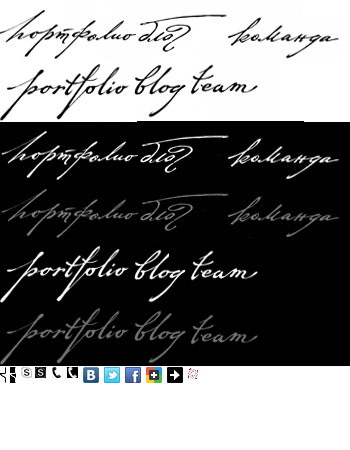 портфолио блог команда
portfolio blog team
портфолио блог команда
портфолио блог команда
portfolio blog team
portfolio blog team
S S B f